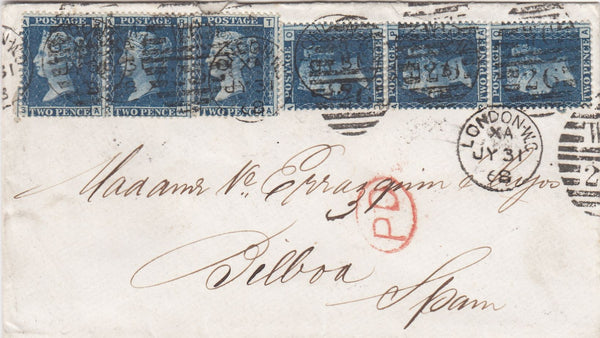 POSTAGE POSTAGE POSTAGE POSTAGE POSTAGE POSTAGE
TWO PENCE TWO PENCE TWO PENCE TWO PENCE TWO PENCE TWO PENCE
LONDON·W.C
XA
JY 31
68
Madame Ve. Errazquin
PD
Bilboa
Spain